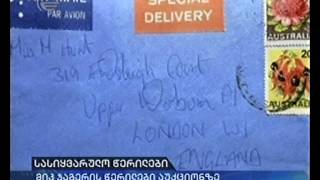 MAIL
PAR AVION
SPECIAL
DELIVERY
AUSTRALIA
20
AUSTRALIA
Miss M Hunt
319 Ashleigh Court
Upper Woburn Pl
LONDON W1
ENGLAND
სასიყვარულო წერილები
მიკ ჯაგერის წერილები აუქციონზე